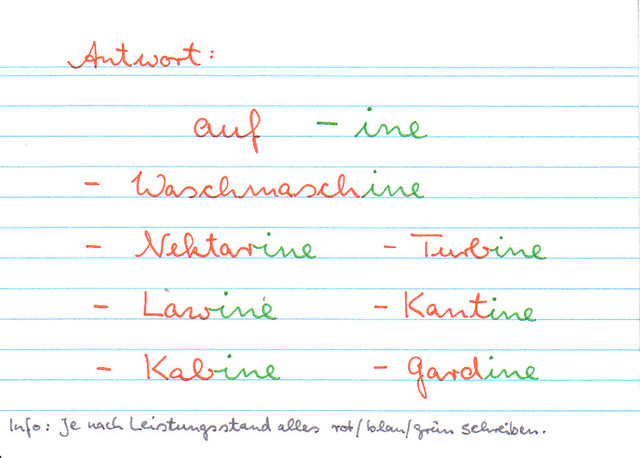 Antwort:
auf - ine
- Waschmaschine
- Nektarine - Turbine
- Lawine - Kantine
- Kabine - Gardine
Info: Je nach Leistungsstand alles rot/blau/grün schreiben.